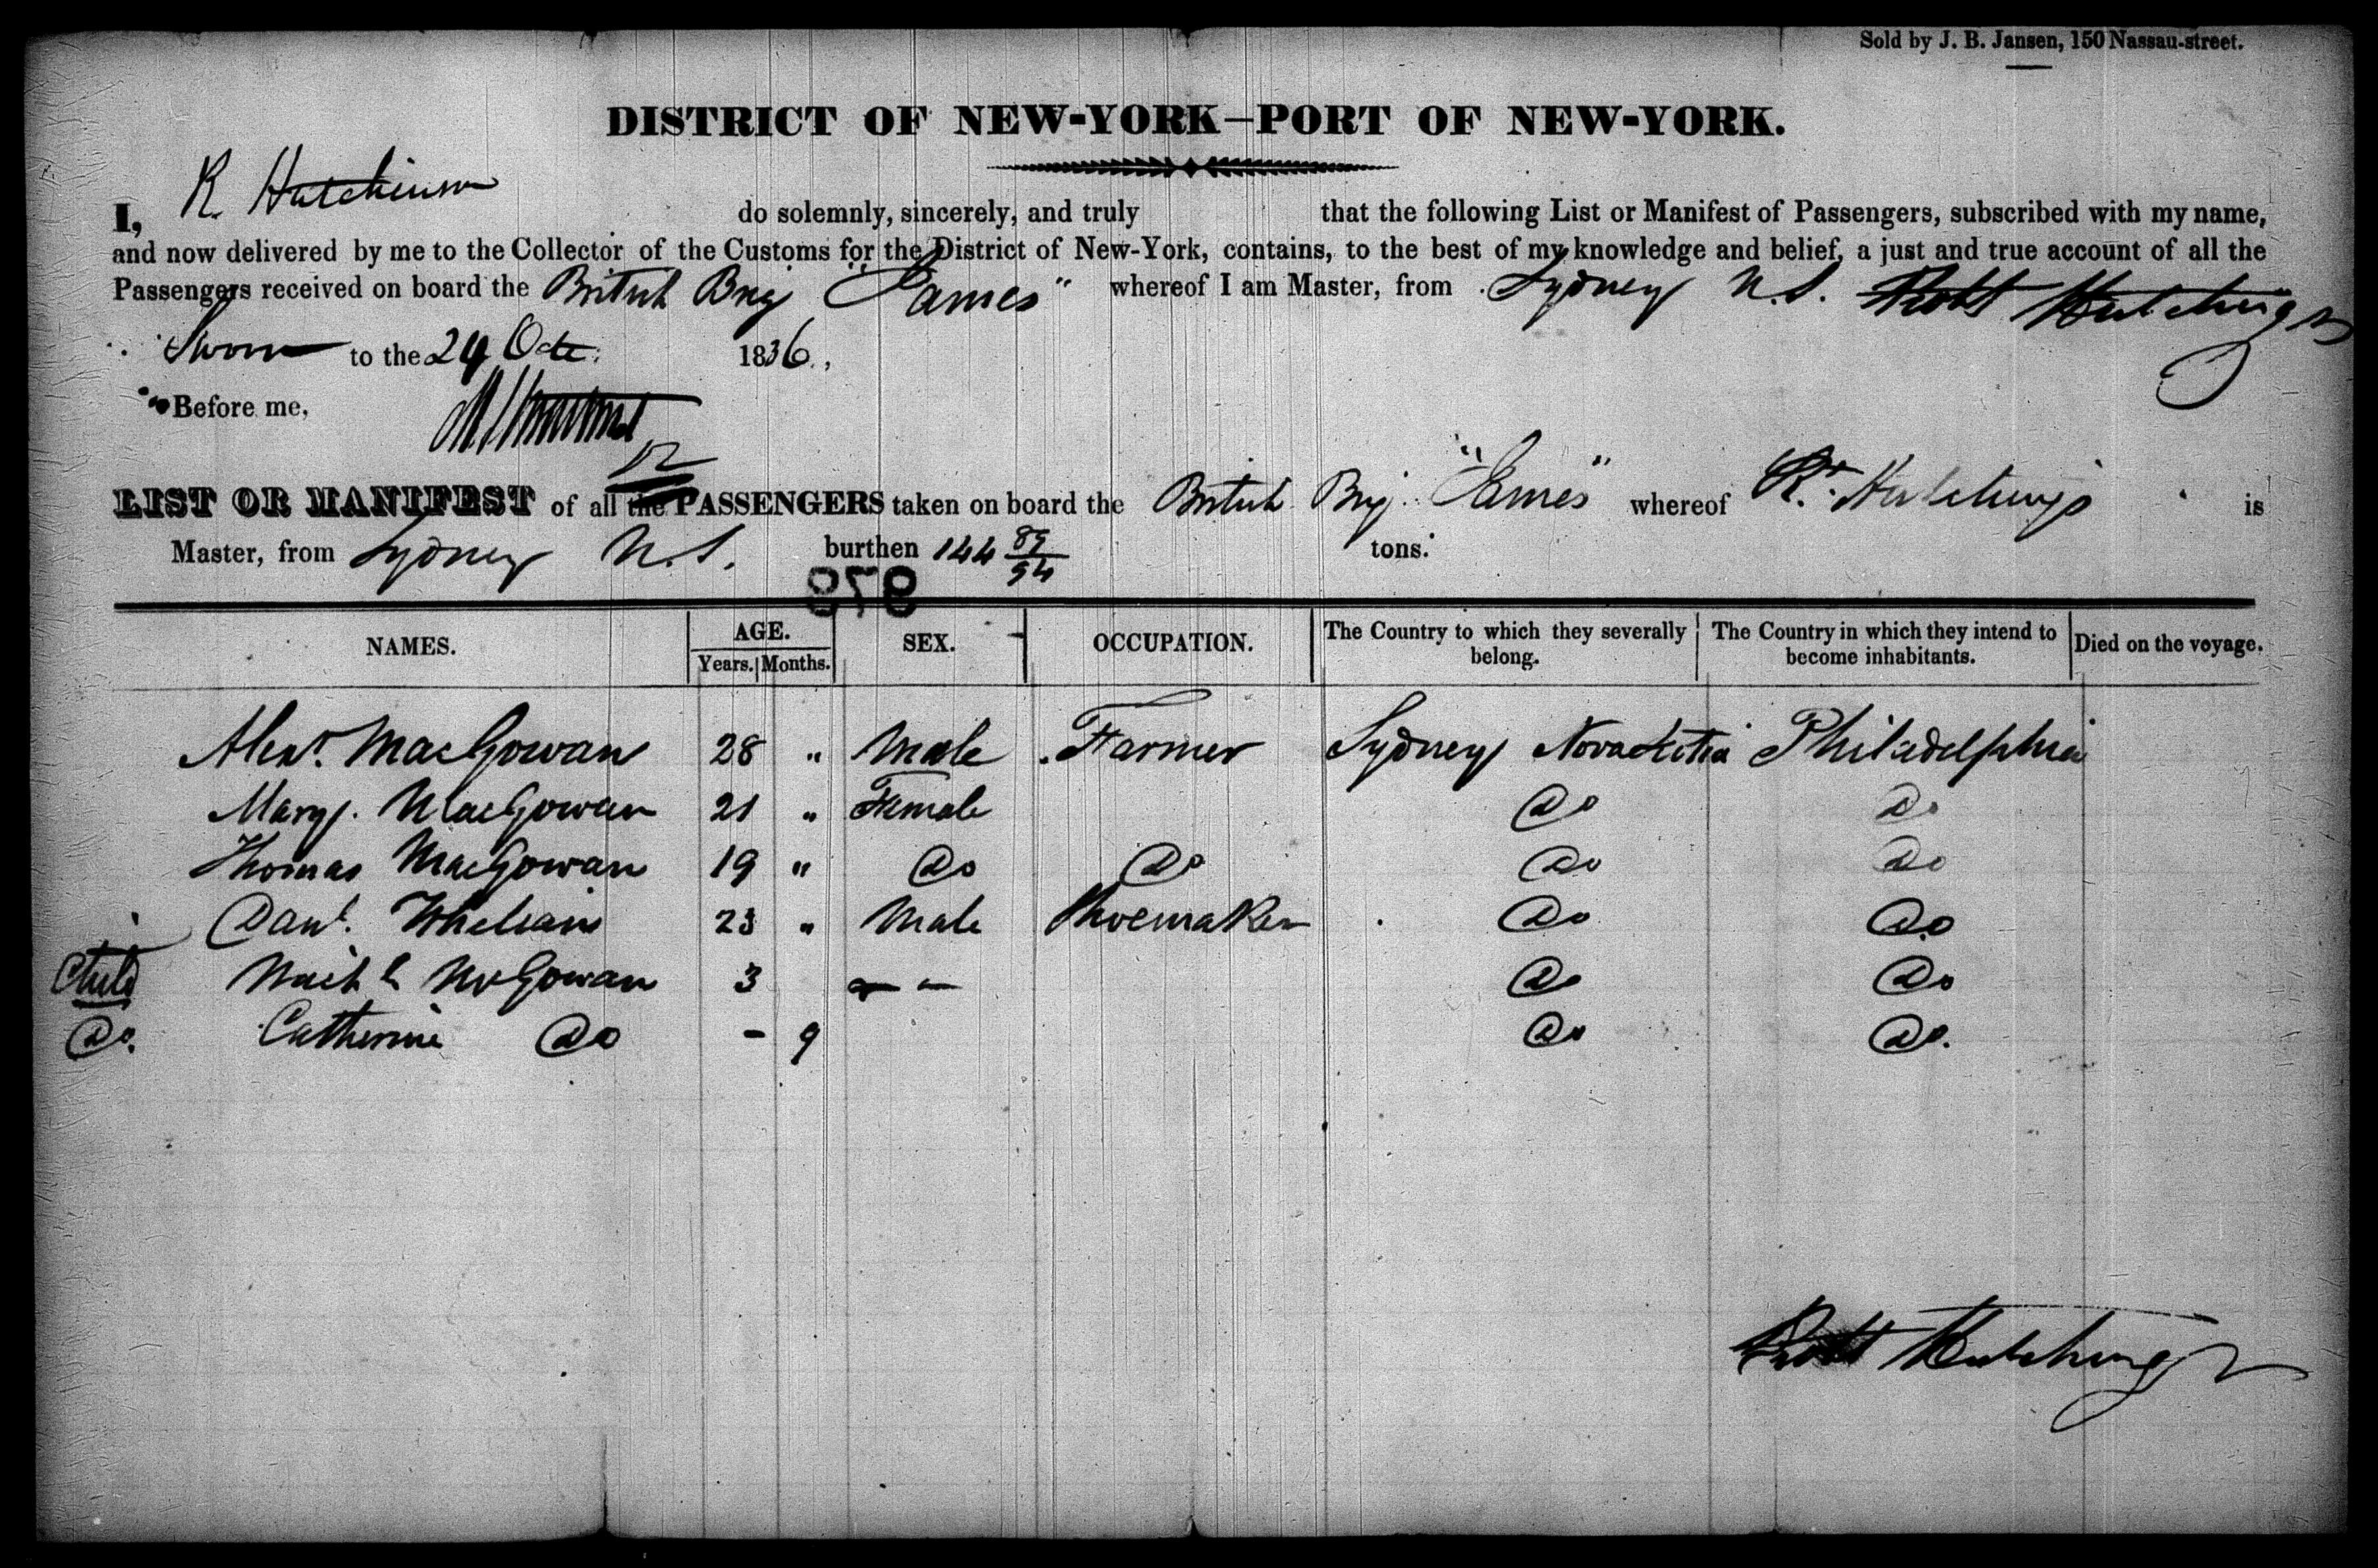 Sold by J. B. Jansen, 150 Nassau-street.
DISTRICT OF NEW-YORK—PORT OF NEW-YORK.
I, R. Hutchinson do solemnly, sincerely, and truly that the following List or Manifest of Passengers, subscribed with my name,
and now delivered by me to the Collector of the Customs for the District of New-York, contains, to the best of my knowledge and belief, a just and true account of all the
Passengers received on board the British Brig "James" whereof I am Master, from Sydney N.S. Robt Hutchings
Sworn to the 29 Oct. 1836.
Before me,
12
LIST OR MANIFEST of all the PASSENGERS taken on board the British Brig "James" whereof Rt. Hutchings is
Master, from Sydney N.S. burthen 144 89/94 tons.
879
NAMES. AGE. Years. Months. SEX. OCCUPATION. The Country to which they severally belong. The Country in which they intend to become inhabitants. Died on the voyage.
Alexr. MacGowan 28 " Male Farmer Sydney Novascotia Philadelphia
Mary. MacGowan 21 " Female Do Do
Thomas MacGowan 19 " Do Do Do Do
Danl. Whelan 23 " Male Shoemaker Do Do
Child McGowan 3 - - Do Do
Do. Catherine Do - 9 Do Do.
Robt Hutchings